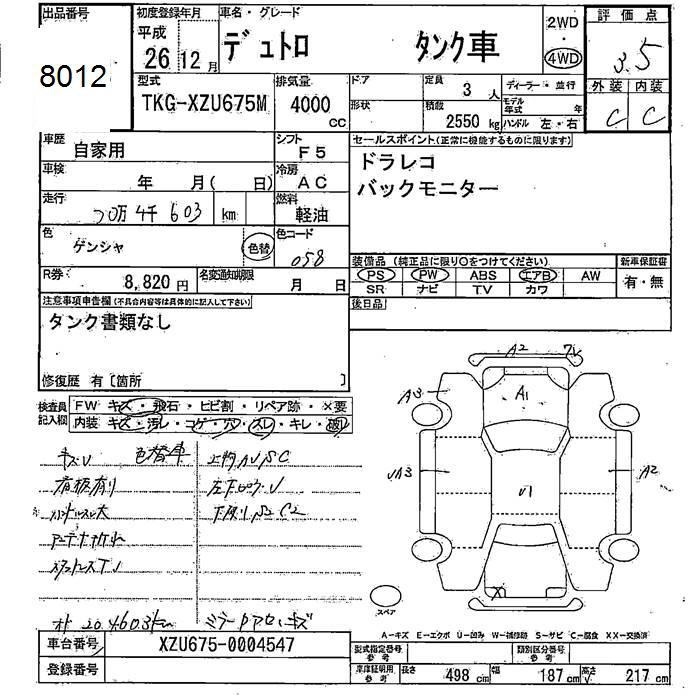 出品番号
8012
初度登録年月
平成
26 12月
車名・グレード
デュトロ タンク車
2WD
・
4WD
評価点
3.5
外装 内装
C C
型式
TKG-XZU675M
排気量
4000
cc
ドア
形状
定員
3人
積載
2550 kg
ディーラー・並行
モデル年式 年
ハンドル 左・右
車歴
自家用
シフト
F5
車検
年 月( 日)
冷房
AC
走行
km
燃料
軽油
色
ゲンシャ
色替
色コード
058
R券
8,820円
名変通知期限
月 日
セールスポイント(正常に機能するものに限ります)
ドラレコ
バックモニター
装備品 (純正品に限り○をつけてください)
PS PW ABS エアB AW
SR ナビ TV カワ
新車保証書
有・無
後日品
注意事項申告欄(不具合内容等は具体的に記入して下さい)
タンク書類なし
修復歴 有〔箇所 〕
検査員
記入欄
FW キズ・飛石・ヒビ割・リペア跡・×要
内装 キズ・汚レ・コゲ・穴・スレ・キレ・破レ
キズU 色替車
看板有り
ハンドルスレ大
下廻りS2 C2
A2
A3
A1
UA3
U1
A2
X
スペア
A-キズ E-エクボ U-凹み W-補修跡 S-サビ C-腐食 XX-交換済
車台番号
XZU675-0004547
登録番号
型式指定番号
参考
類別区分番号
参考
車庫証明用
参考
長さ 498 cm 幅 187 cm 高さ 217 cm